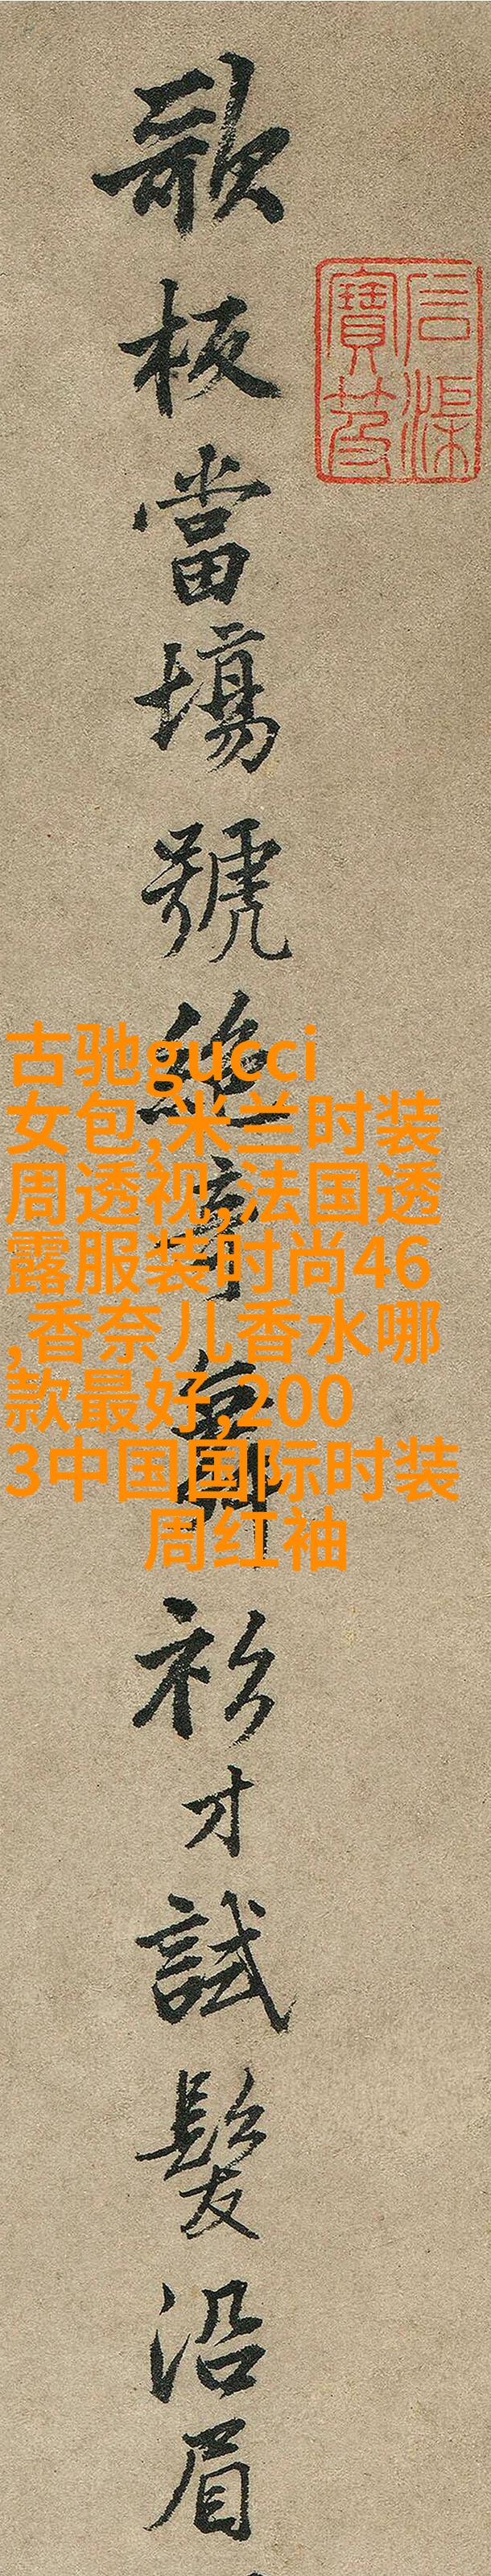 石渠
寶笈
歌板當場號絶奇舞衫才試髮沿眉
古驰gucci
女包,米兰时装
周透视,法国透
露服装时尚46
,香奈儿香水哪
款最好,200
3中国国际时装
周红袖